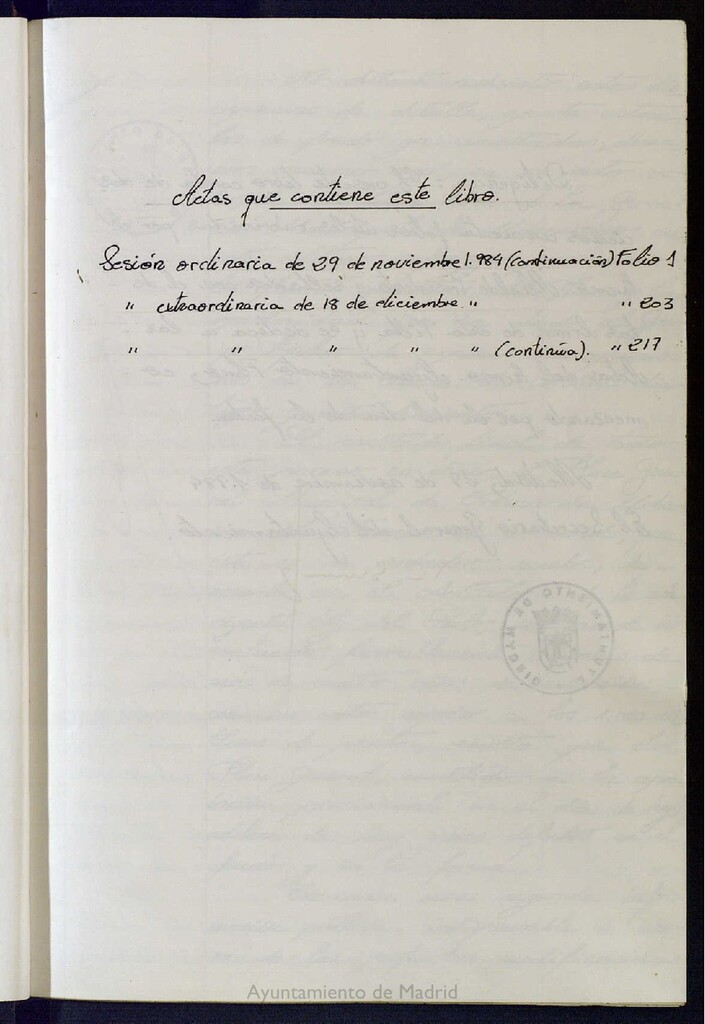 Actas que contiene este libro.
Sesión ordinaria de 29 de noviembre 1.984 (continuación) Folio 1
" extraordinaria de 18 de diciembre " " 203
" " " " " (continúa). " 217
AYUNTAMIENTO DE MADRID
Ayuntamiento de Madrid